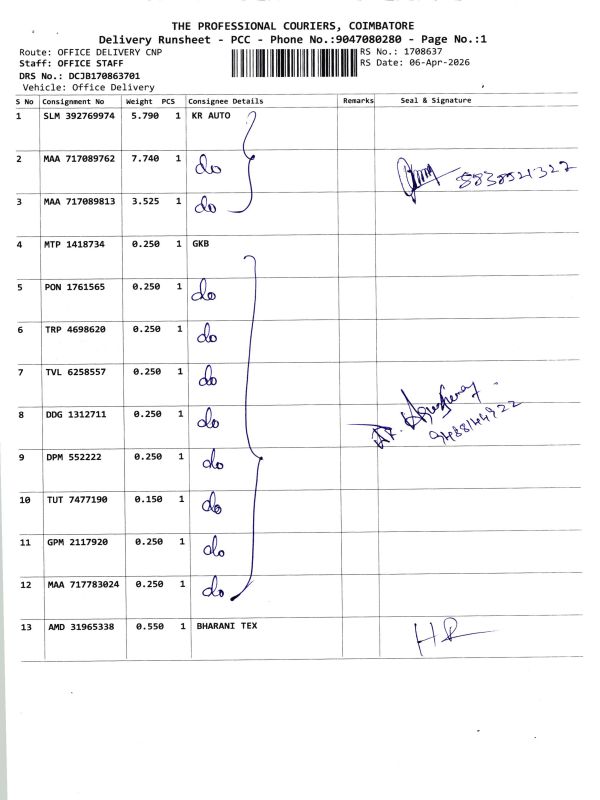 THE PROFESSIONAL COURIERS, COIMBATORE
Delivery Runsheet - PCC - Phone No.:9047080280 - Page No.:1
Route: OFFICE DELIVERY CNP RS No.: 1708637
Staff: OFFICE STAFF RS Date: 06-Apr-2026
DRS No.: DCJB170863701
Vehicle: Office Delivery
S No Consignment No Weight PCS Consignee Details Remarks Seal & Signature
1 SLM 392769974 5.790 1 KR AUTO
2 MAA 717089762 7.740 1 do 8838521322
3 MAA 717089813 3.525 1 do
4 MTP 1418734 0.250 1 GKB
5 PON 1761565 0.250 1 do
6 TRP 4698620 0.250 1 do
7 TVL 6258557 0.250 1 do
8 DDG 1312711 0.250 1 do
9 DPM 552222 0.250 1 do
10 TUT 7477190 0.150 1 do
11 GPM 2117920 0.250 1 do
12 MAA 717783024 0.250 1 do
13 AMD 31965338 0.550 1 BHARANI TEX